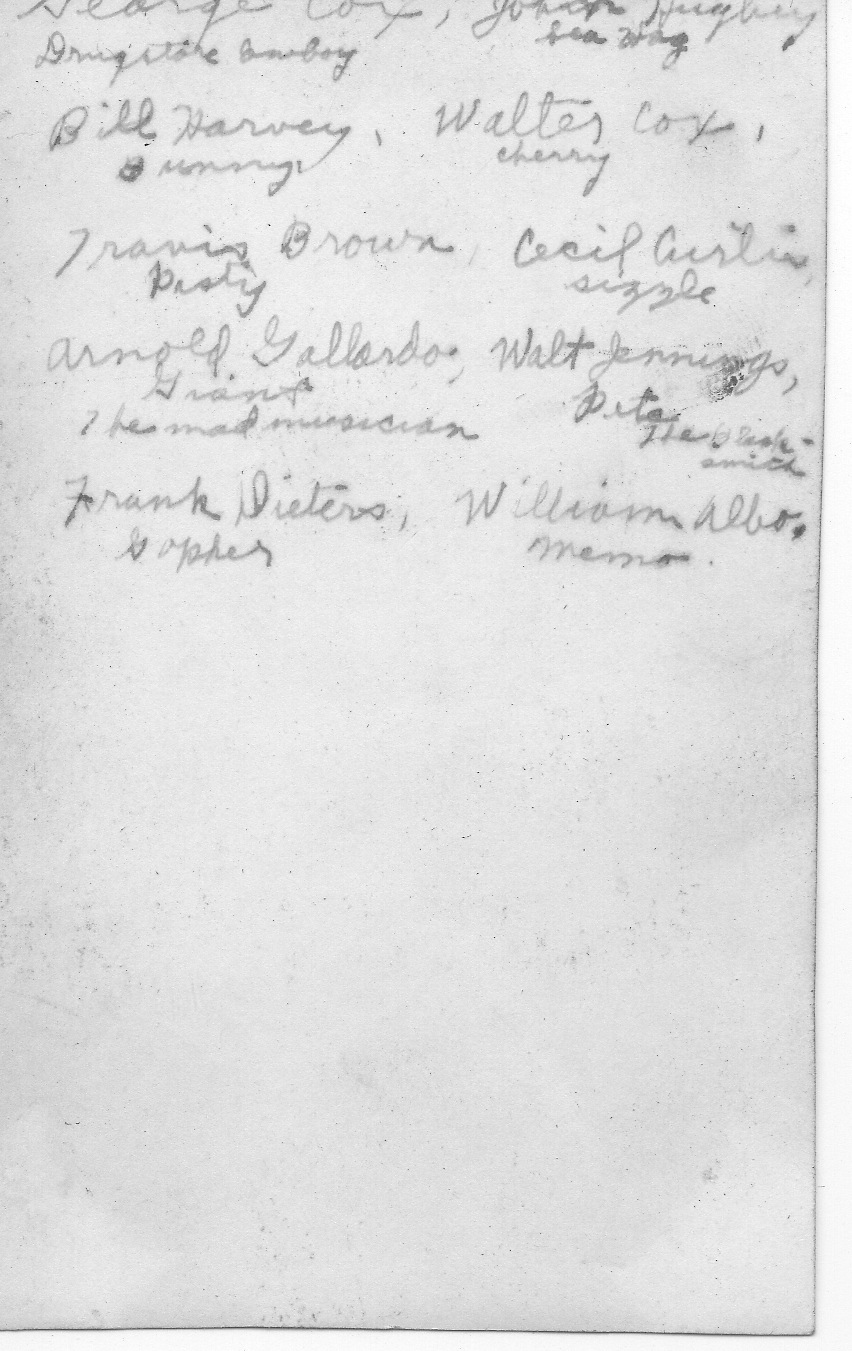 George Cox, John Hughey,
Drugstore Cowboy Sea Wag
Bill Harvey, Walter Cox,
Bunny cherry
Travis Brown, Cecil Curtis,
Pasty sizzle
Arnold Gallardo, Walt Jennings,
Giant Pete
The mad musician The Black-
smith
Frank Dieters, William Albo.
Gopher Memo.